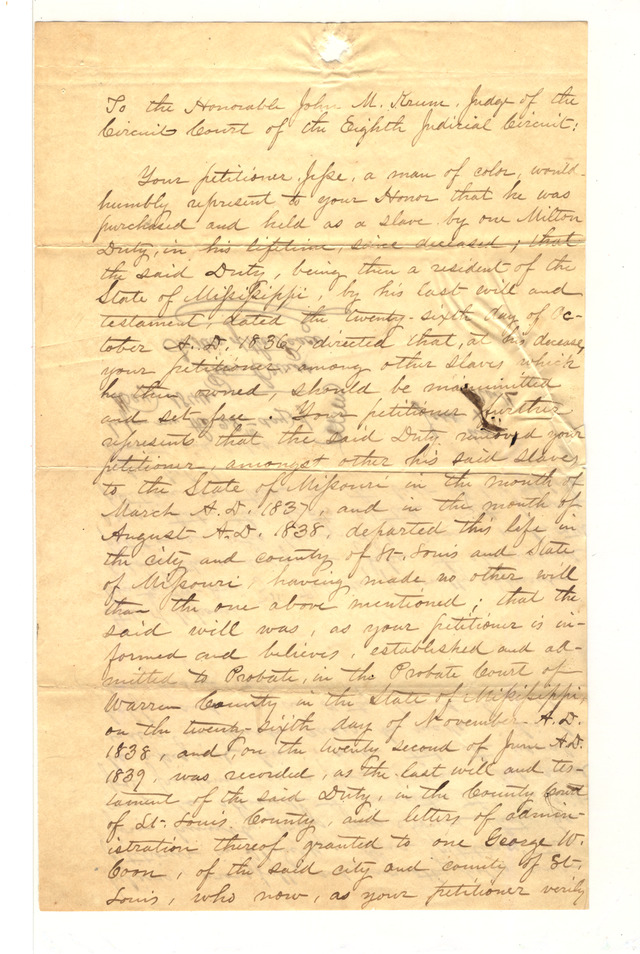 To the Honorable John M. Krum, Judge of the
Circuit Court of the Eighth Judicial Circuit:
Your petitioner, Jesse, a man of color, would
humbly represent to your Honor that he was
purchased and held as a slave by one Milton
Duty, in his lifetime, since deceased; that
the said Duty, being then a resident of the
State of Mississippi, by his last will and
testament, dated the twenty-sixth day of Oc-
tober A.D. 1836 directed that, at his decease,
your petitioner among other slaves which
he then owned, should be manumitted
and set free. Your petitioner further
represents that the said Duty removed your
petitioner, amongst other his said slaves
to the State of Missouri in the month of
March A.D. 1837, and in the month of
August A.D. 1838, departed this life in
the city and county of St. Louis and State
of Missouri, having made no other will
than the one above mentioned; that the
said will was, as your petitioner is in-
formed and believes, established and ad-
mitted to Probate, in the Probate Court of
Warren County in the State of Mississippi,
on the twenty-sixth day of November A.D.
1838, and, on the twenty second of June A.D.
1839, was recorded, as the last will and tes-
tament of the said Duty, in the County Court
of St. Louis County, and letters of admin-
istration thereof granted to one George W.
Coon, of the said city and county of St.
Louis, who now, as your petitioner verily